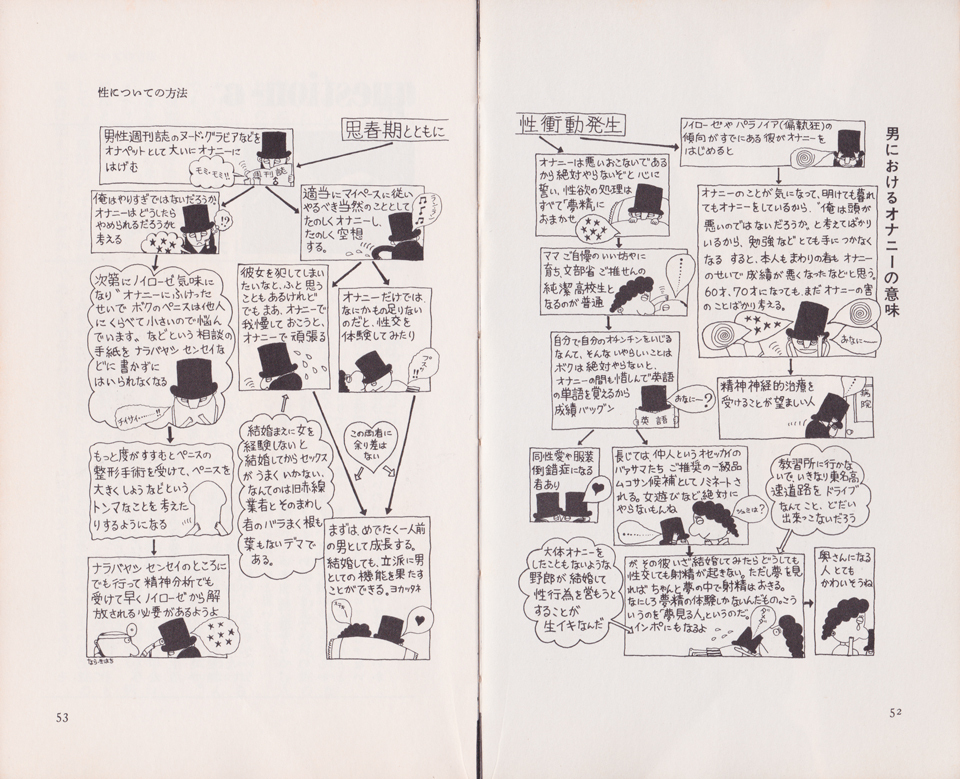 男におけるオナニーの意味
性衝動発生
ノイローゼやパラノイア(偏執狂)の
傾向がすでにある彼がオナニーを
はじめると
オナニーは悪いおこないであるから
から絶対やらないぞと心に
誓い、性欲の処理は
すべて"夢精"に
おまかせ
オナニーのことが気になって、明けても暮れ
てもオナニーをしているから、"俺は頭が
悪いのではないだろうか。と考えてばかり
いるから、勉強などとても手につかなく
なる すると、本人もまわりの者も オナニー
のせいで成績が悪くなったなどと思う。
60才、70才になっても、まだオナニーの害
のことばかり考える。
おなにー
ママご自慢のいい坊やに
育ち、文部省ご推せんの
純潔高校生と
なるのが普通
自分で自分のオチンチンをいじる
なんて、そんないやらしいことは
ボクは絶対やらないと、
オナニーの間も惜しんで英語
の単語を覚えるから
成績バッグン
おなにー?
英語
精神神経的治療を
受けることが望ましい人
病院
同性愛や服装
倒錯症になる
者あり
長じては、仲人というオセッカイの
バッサマたち ご推奨の一級品
ムコサン候補としてノミネート
される。女遊びなど絶対に
やらないもんね
シュミは?
教習所に行かな
いで、いきなり東名高
速道路をドライブ
なんてこと、どだい
出来っこないだろう
大体オナニーを
したこともないような
野郎が結婚して
性行為を営もうと
することが
生イキなんだ
が、その彼いざ結婚してみたらどうしても
性交しても射精が起きない。ただし夢を見
れば ちゃんと夢の中で射精はおきる。
なにしろ夢精の体験しかないんだもの。こう
いうのを「夢見る人」というのだ。
インポにもなるよ
奥さんになる
人とても
かわいそうね
52
性についての方法
思春期とともに
男性週刊誌のヌード・グラビアなどを
オナペットとして大いにオナニーに
はげむ
モミ・モミ!!
週刊誌
俺はやりすぎではないだろうか、
オナニーはどうしたら
やめられるだろうかと
考える
!?
適当にマイペースに従い
やるべき当然のこととして
たのしくオナニーし、
たのしく空想
する。
次第にノイローゼ気味に
なり"オナニーにふけった
せいで ボクのペニスは他人
にくらべて小さいので悩ん
でいます。などという相談の
手紙をナラバヤシ センセイな
どに書かずに
はいられなくなる
チイサイ……!!
彼女を犯してしまい
たいなと、ふと思う
こともあるけれど
でもまあ、オナニーで
我慢しておこうと、
オナニーで頑張る
オナニーだけでは、
なにかもの足りない
のだと、性交を
体験してみたり
結婚まえに女を
経験しないと
結婚してからセックス
がうまくいかない、
なんてのは旧赤線
業者とそのまわし
者のバラまく根も
葉もないデマで
ある。
この両者に
余り差は
ない
もっと度がすすむとペニスの
整形手術を受けて、ペニスを
大きくしようなどという
トンマなことを考えた
りするようになる
ナラバヤシ センセイのところに
でも行って精神分析でも
受けて早くノイローゼから解
放される必要があるようよ
まずは、めでたく一人前
の男として成長する。
結婚しても、立派に男
としての機能を果たす
ことができる。ヨカッタネ
53